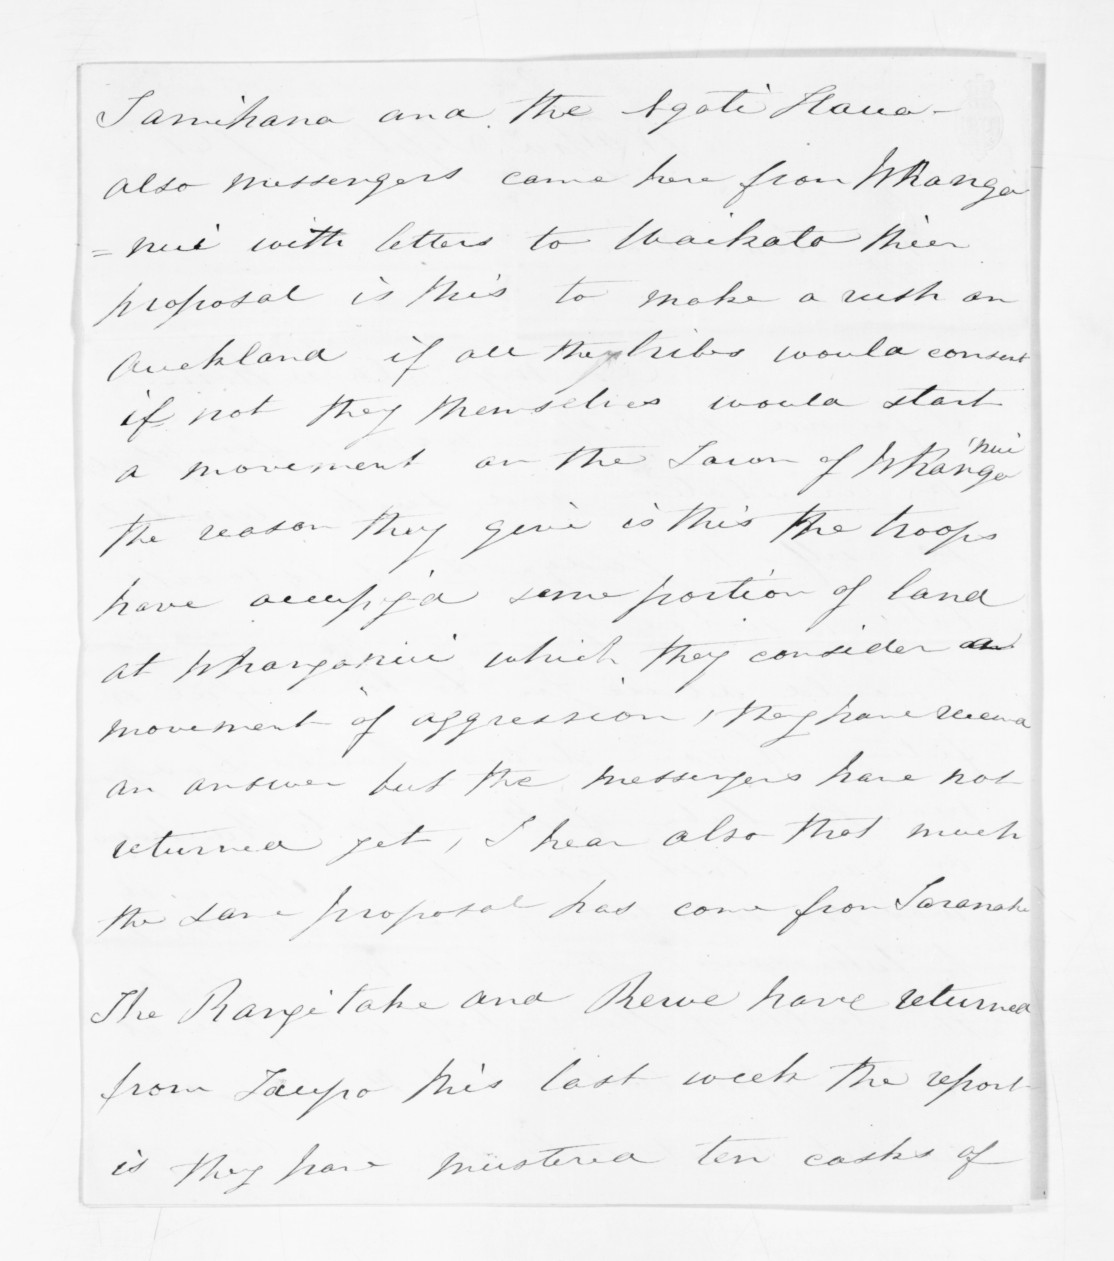 Tamihana and the Ngati Haua -
also messengers came here from Whanga
= nui with letters to Waikato thier
proposal is this to make a rush on
Auckland if all the tribes would consent
if not they themselves would start
a movement on the Town of Whanga nui
the reason they give is this the troops
have occupiyd some portion of land
at Whanganui which they consider an
movement of aggression, they have recevd
an answer but the messengers have not
returned yet, I hear also that much
the same proposal has come from Taranake
The Rangitake and Rewe have returned
from Taupo this last week the report
is they have mustered ten casks of